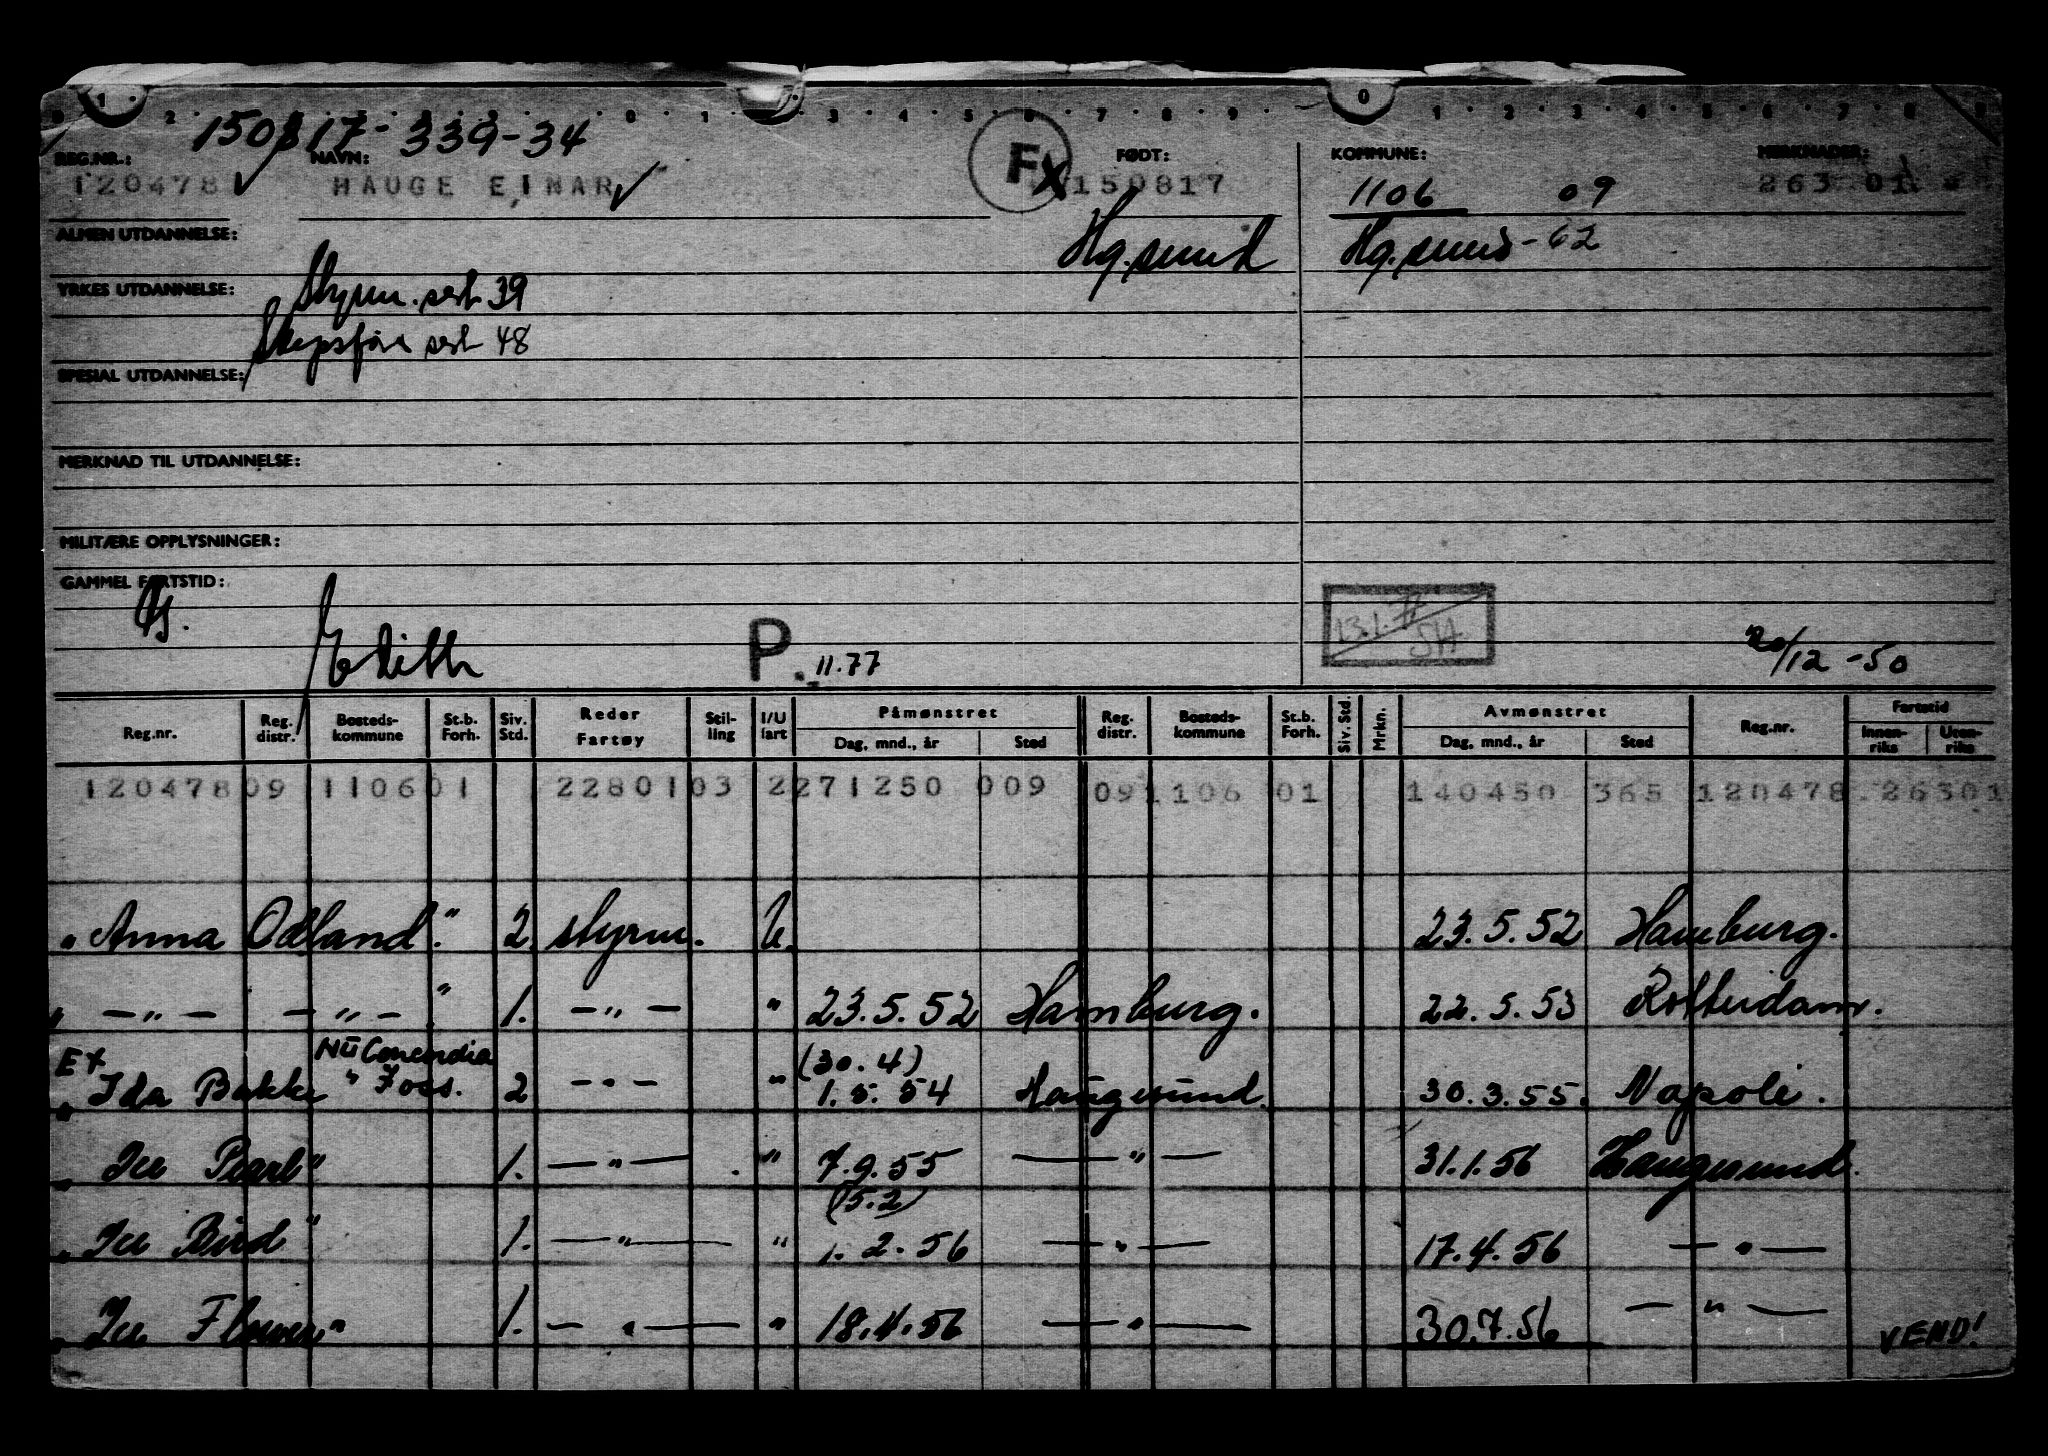 150817-339-34
REG.NR.: NAVN: FØDT: KOMMUNE: MERKNADER:
120478 HAUGE EINAR F X 150817 1106 09 263 01
ALMEN UTDANNELSE: Hg.sund Hg.sund-62
YRKES UTDANNELSE: Styrm. sert 39
Skipsfør sert 48
SPESIAL UTDANNELSE:
MERKNAD TIL UTDANNELSE:
MILITÆRE OPPLYSNINGER:
GAMMEL FARTSTID:
Edith P. 11.77 20/12-50
Reg.nr. Reg. distr. Bosteds-kommune St.b. Forh. Siv. Std. Reder Fartøy Stil-ling I/U fart Påmønstret Dag, mnd., år Sted Reg. distr. Bosteds-kommune St.b. Forh. Siv. Std. Mrkn. Avmønstret Dag, mnd., år Sted Reg.nr. Fartstid Innen-riks Uten-riks
120478 09 1106 01 22801 03 2 271250 009 09 1106 01 140450 365 120478 26301
" Anna Odland." 2 styrm. U. 23.5.52 Hamburg.
" — " — — " — " 1. — " — " 23.5.52 Hamburg. 22.5.53 Rotterdam.
Ex Nu Concordia (30.4)
" Ida Bakke " Foss. 2 — " — " 1.5.54 Haugesund. 30.3.55. Napoli.
" Ice Pearl" 1. — " — " 7.9.55 — " — 31.1.56 Haugesund.
(5.2)
" Ice Bird" 1. — " — " 1.2.56 — " — 17.4.56 — " —
" Ice Flower" 1. — " — " 18.4.56 — " — 30.7.56 — " — VEND!